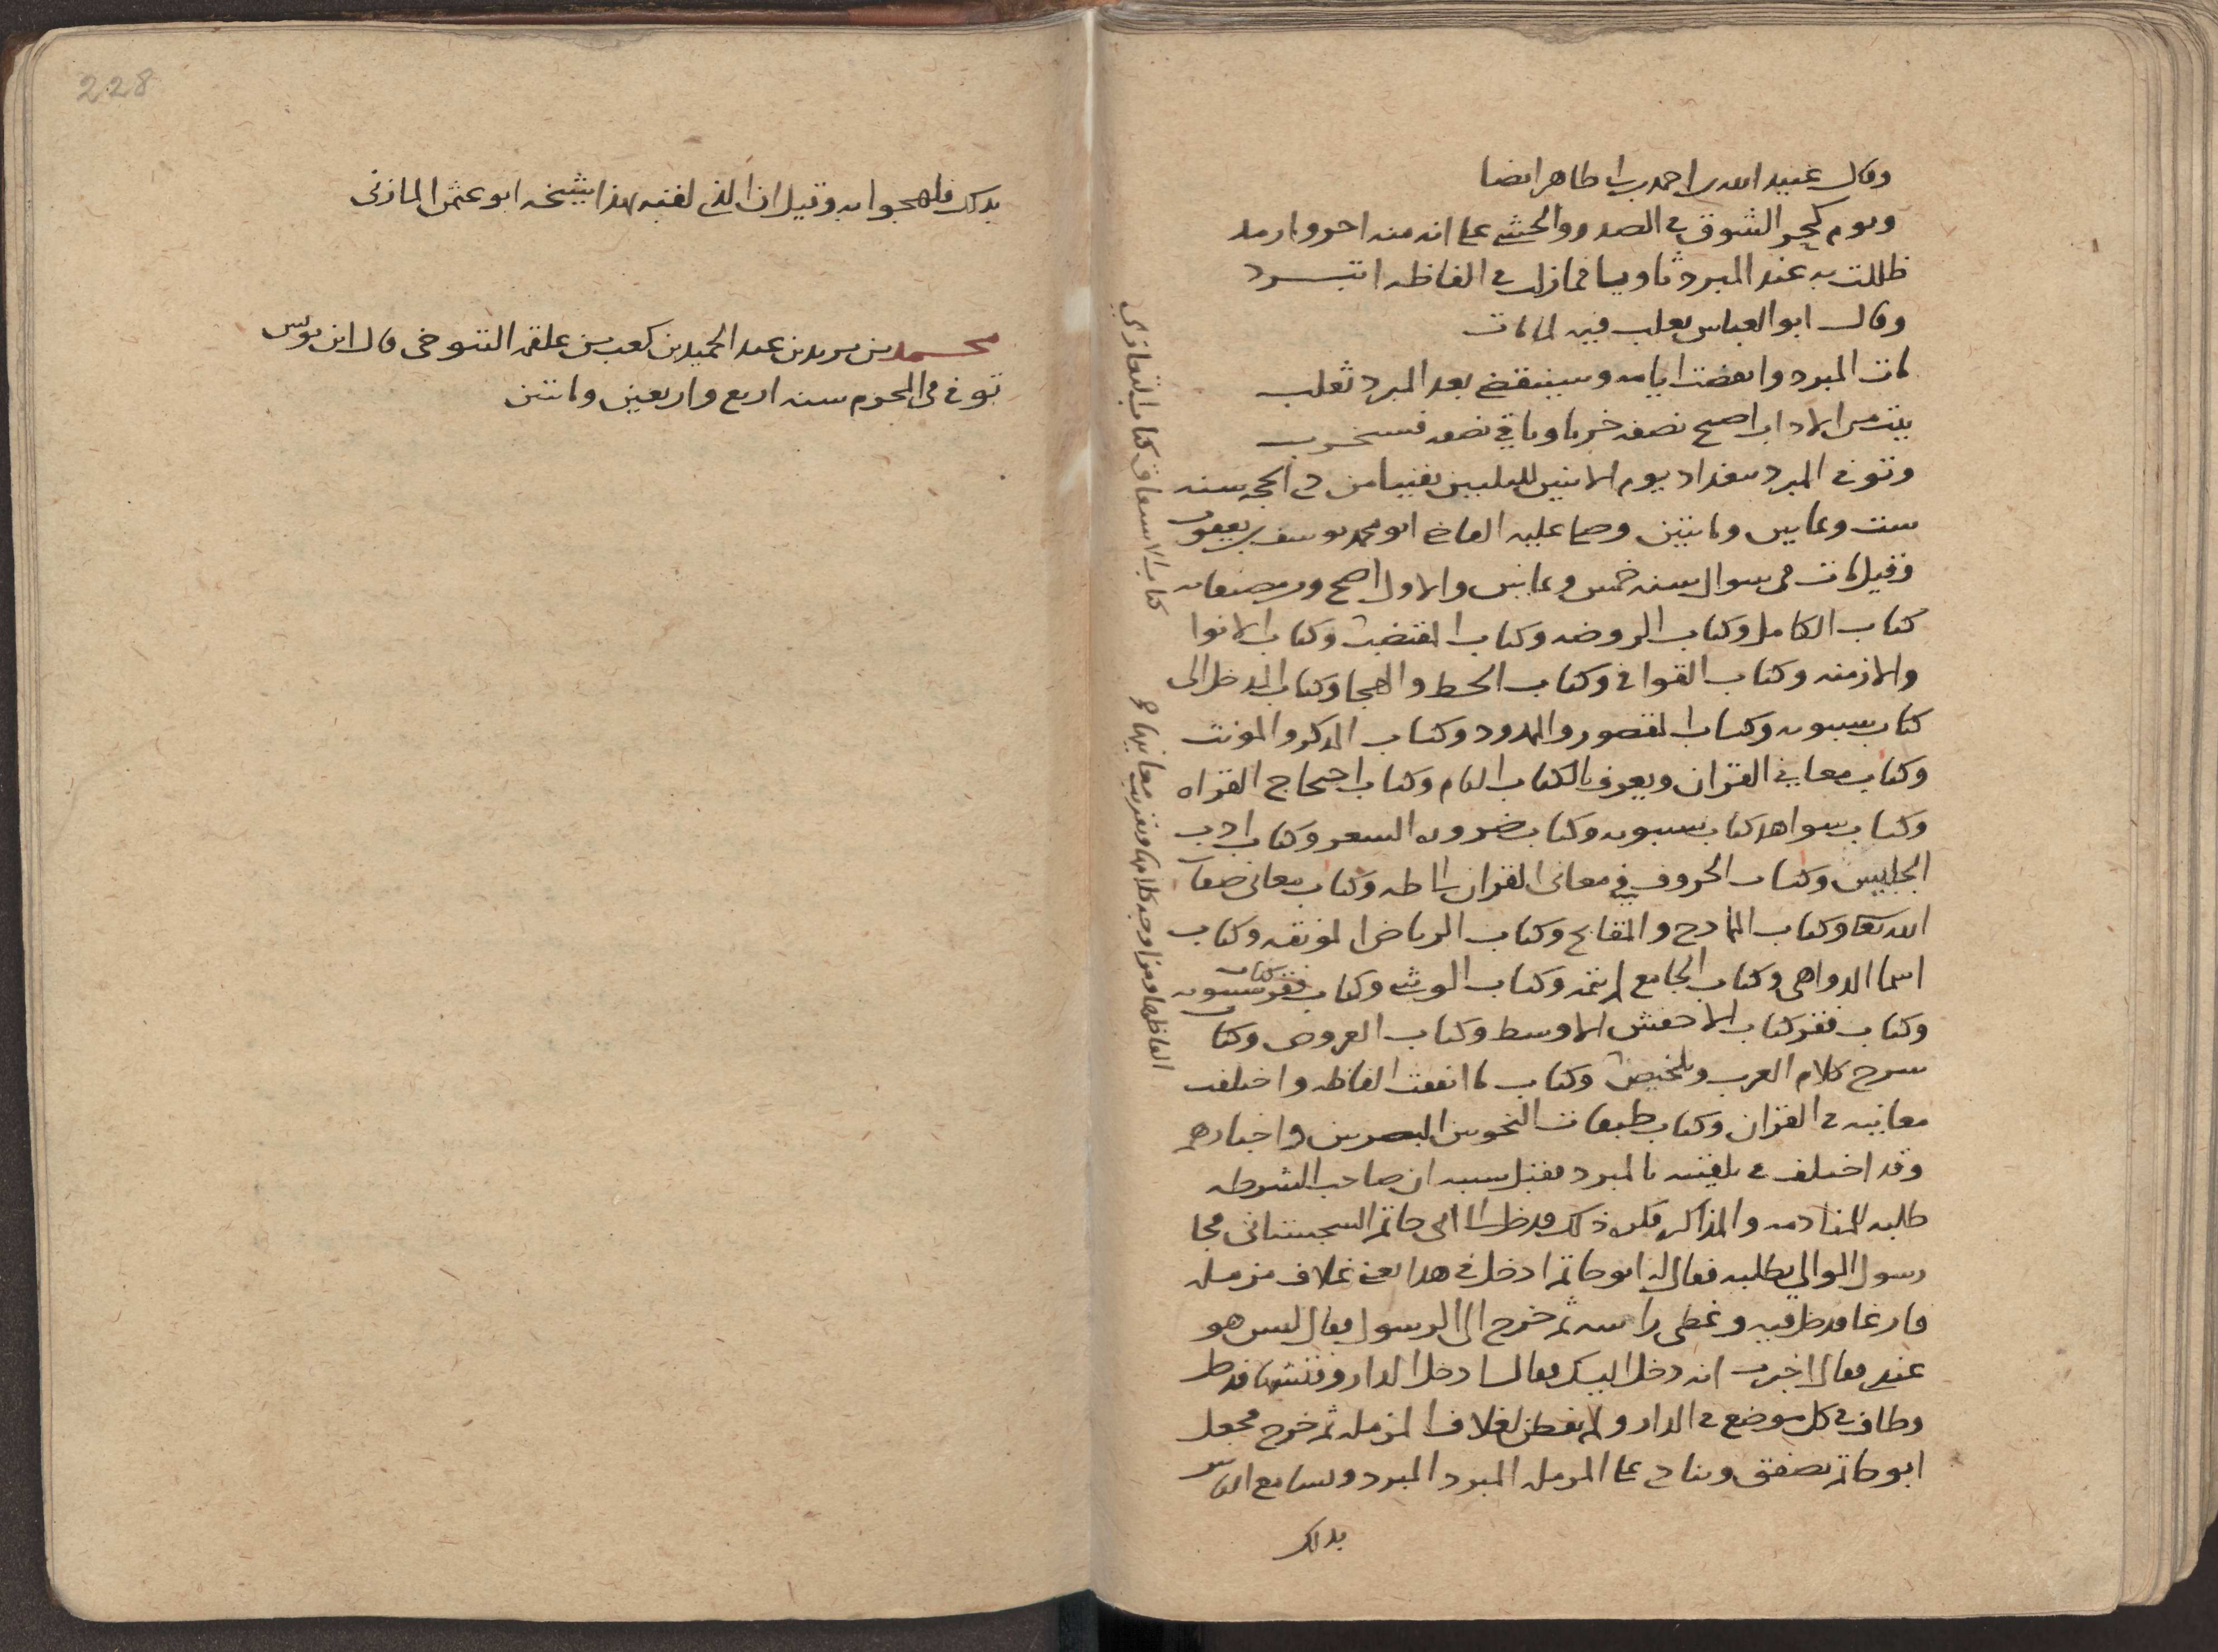 وقال عبيد الله بن احمد بن ابي طاهر ايضا
ويوم كحر الشوق في الصدر والحشى على انه منه احر وارمد
ظللت به عند المبرد ثاويا فمازلت في الفاظه اتبرد
وقال ابو العباس ثعلب فيه لما مات
مات المبرد وانقضت ايامه وسينقضي بعد المبرد ثعلب
بيت من الاداب اصبح نصفه خربا وباقي نصفه فسيخرب
وتوفي المبرد ببغداد يوم الاثنين لليلتين بقيتا من ذي الحجه سنه
ست وثمانين ومائتين وصلى عليه القاضي ابو محمد يوسف بن يعقوب
وقيل مات في شوال سنه خمس وثمانين والاول اصح ومن مصنفاته
كتاب الكامل وكتاب الروضه وكتاب المقتضب وكتاب الانوا
والازمنه وكتاب القوافي وكتاب الخط والهجا وكتاب المدخل الى
كتاب سيبويه وكتاب المقصور والممدود وكتاب المذكر والمونث
وكتاب معاني القران ويعرف بالكتاب التام وكتاب احتجاج القراه
وكتاب شواهد كتاب سيبويه وكتاب ضروره الشعر وكتاب ادب
الجليس وكتاب الحروف في معاني القران الى طه وكتاب معاني صفات
الله تعالى وكتاب الممادح والمقابح وكتاب الرياض المونقه وكتاب
اسما الدواهي وكتاب الجامع لم يتمه وكتاب الوشي وكتاب فقر كتاب سيبويه
وكتاب فقر كتاب الاخفش الاوسط وكتاب العروض وكتاب
شرح كلام العرب وتلخيص وكتاب ما اتفقت الفاظه واختلفت
معانيه في القران وكتاب طبقات النحويين البصريين واخبارهم
وقد اختلف في تلقيبه بالمبرد فقيل سببه ان صاحب الشرطه
طلبه للمنادمه والمذاكره فكره ذلك فدخل الى ابي حاتم السجستاني فجا
رسول الوالي يطلبه فقال له ابو حاتم ادخل في هذا يعني غلاف مزمله
فارغا فدخل فيه وغطى راسه ثم خرج الى الرسول فقال ليس هو
عندي فقال اخبرت انه دخل اليك فقال ادخل الدار وفتشها فدخل
وطاف في كل موضع في الدار ولم يفطن لغلاف المزمله ثم خرج فجعل
ابو حاتم يصفق وينادي على المزمله المبرد المبرد وتسامع الناس
بذلك
كتاب الاسعاف كتاب التعازي
الفاظها ومزاوجه كلامها وتقريب معانيها
228
بذلك فلهجوا به وقيل ان الذي لقبه بهذا شيخه ابو عثمن المازني
محمد بن يزيد بن عبد الحميد بن كعب بن علقمه التنوخي قال ابن يونس
توفي في المحرم سنه اربع واربعين ومائتين